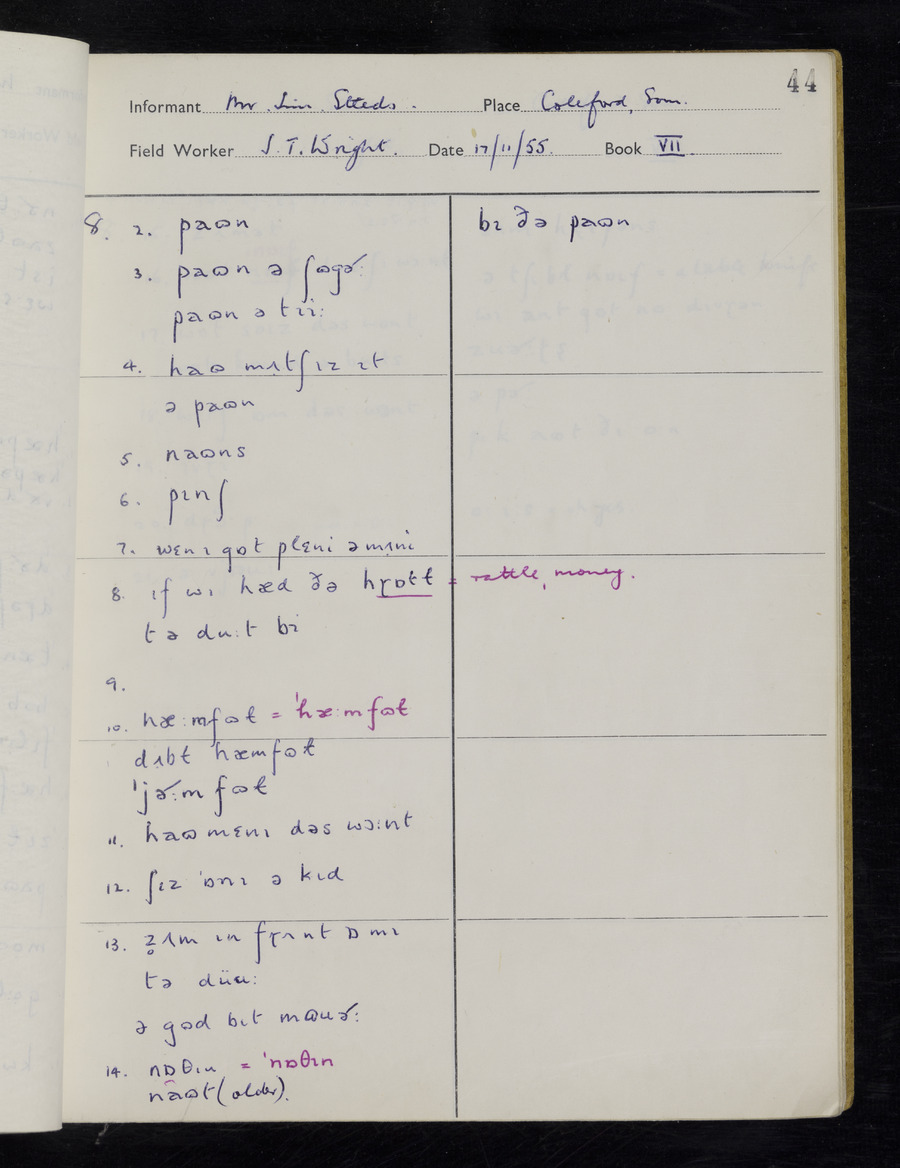 44
Informant Mr Sim Steeds. Place Coleford, Som.
Field Worker J. T. Wright. Date 17/11/55. Book VII
8. 2. paɷn bɪ ðə paɷn
3. paɷn ə ʃɷgɚː
paɷn ə tɪiː
4. haɷ mʌtʃ ɪz ɪt
ə paɷn
5. naɷns
6. pɪnʃ
7. wɛnɪ gɒt plɛni ə mʌni
8. ɪf wɪ hæd ðə hɽɒtɫ = rattle, money.
tə duːt bɪ
9.
10. hæːmfɷt = ˈhæːmfɷt
dʌbɫ hæmfɷɫ
ˈjɚːm fɷɫ
11. haɷ mɛnɪ dəs wɔːnt
12. ʃɪz ˈɒnɪ ə kɪd
13. z̥ʌm ɪn fɽʌnt ɒ mɪ
tə düuː
ə gɷd bɪt mɷuɚː
14. nɒθɪn = ˈnɒθɪn
naɷt (older).